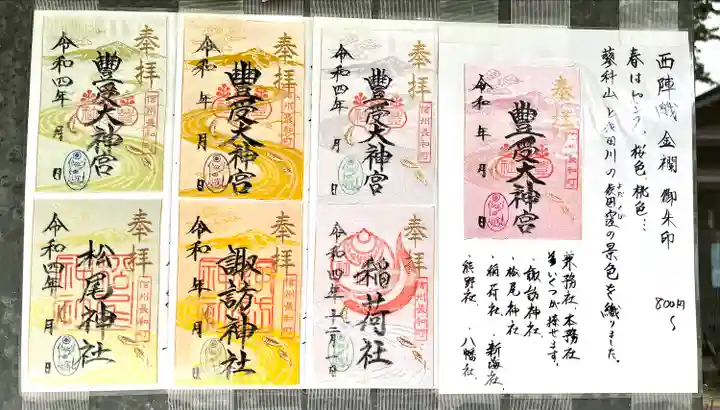 西陣織 金襴 御朱印
800円〜
春はんこう、桜色、桃色…
蓼科山と依田川の依田窪の景色を織りました。
よだくぼ
兼務社、本務社
いくつか捺せます。
・諏訪神社
・松尾神社
・稲荷社
・新海社
・熊野社
・八幡社
奉拝
豊受大神宮
令和 年 月 日
信州長和町
奉拝
豊受大神宮
令和四年 月 日
信州長和町
奉拝
豊受大神宮
令和 年 月 日
信州長和町
奉拝
豊受大神宮
令和四年 月 日
信州長和町
奉拝
稲荷社
令和四年十二月一日
信州長和町
奉拝
諏訪神社
令和 年 月 日
信州長和町
奉拝
松尾神社
令和四年 月 日
信州長和町